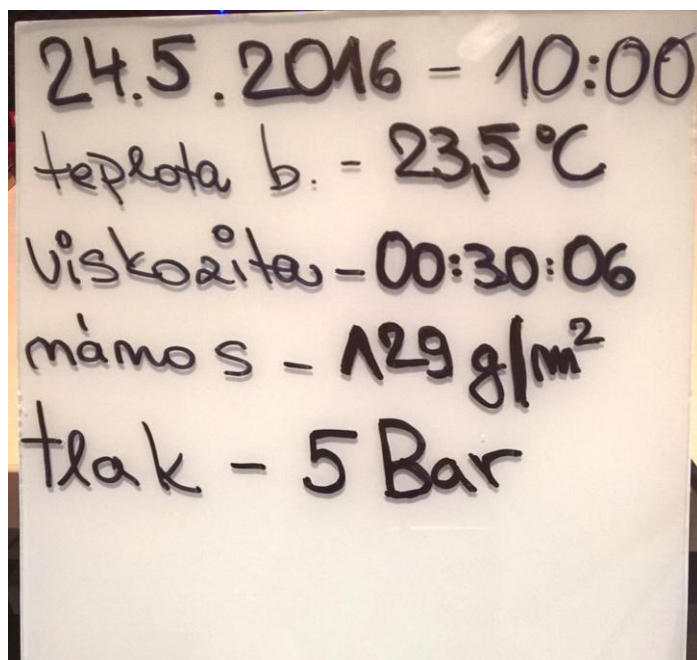 24.5.2016 - 10:00
teplota b. - 23,5°C
viskozita - 00:30:06
nános - 129 g/m²
tlak - 5 Bar